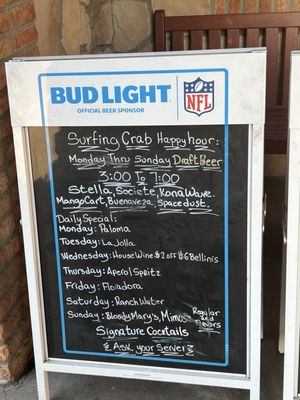 BUD LIGHT
OFFICIAL BEER SPONSOR
NFL
Surfing Crab Happy hour:
Monday Thru Sunday Draft Beer
3:00 To 7:00
Stella, Societe, Kona Wave,
Mango Cart, Buenaveza, Spacedust.
Daily Special:
Monday: Paloma
Tuesday: La Jolla
Wednesday: House Wine $2 off $6 Bellini's
Thursday: Aperol Spritz
Friday: Floradora
Saturday: Ranch Water
Sunday: Bloody Mary's, Mimosa
Regular
Flavors
Signature Cocktails
Ask your Server